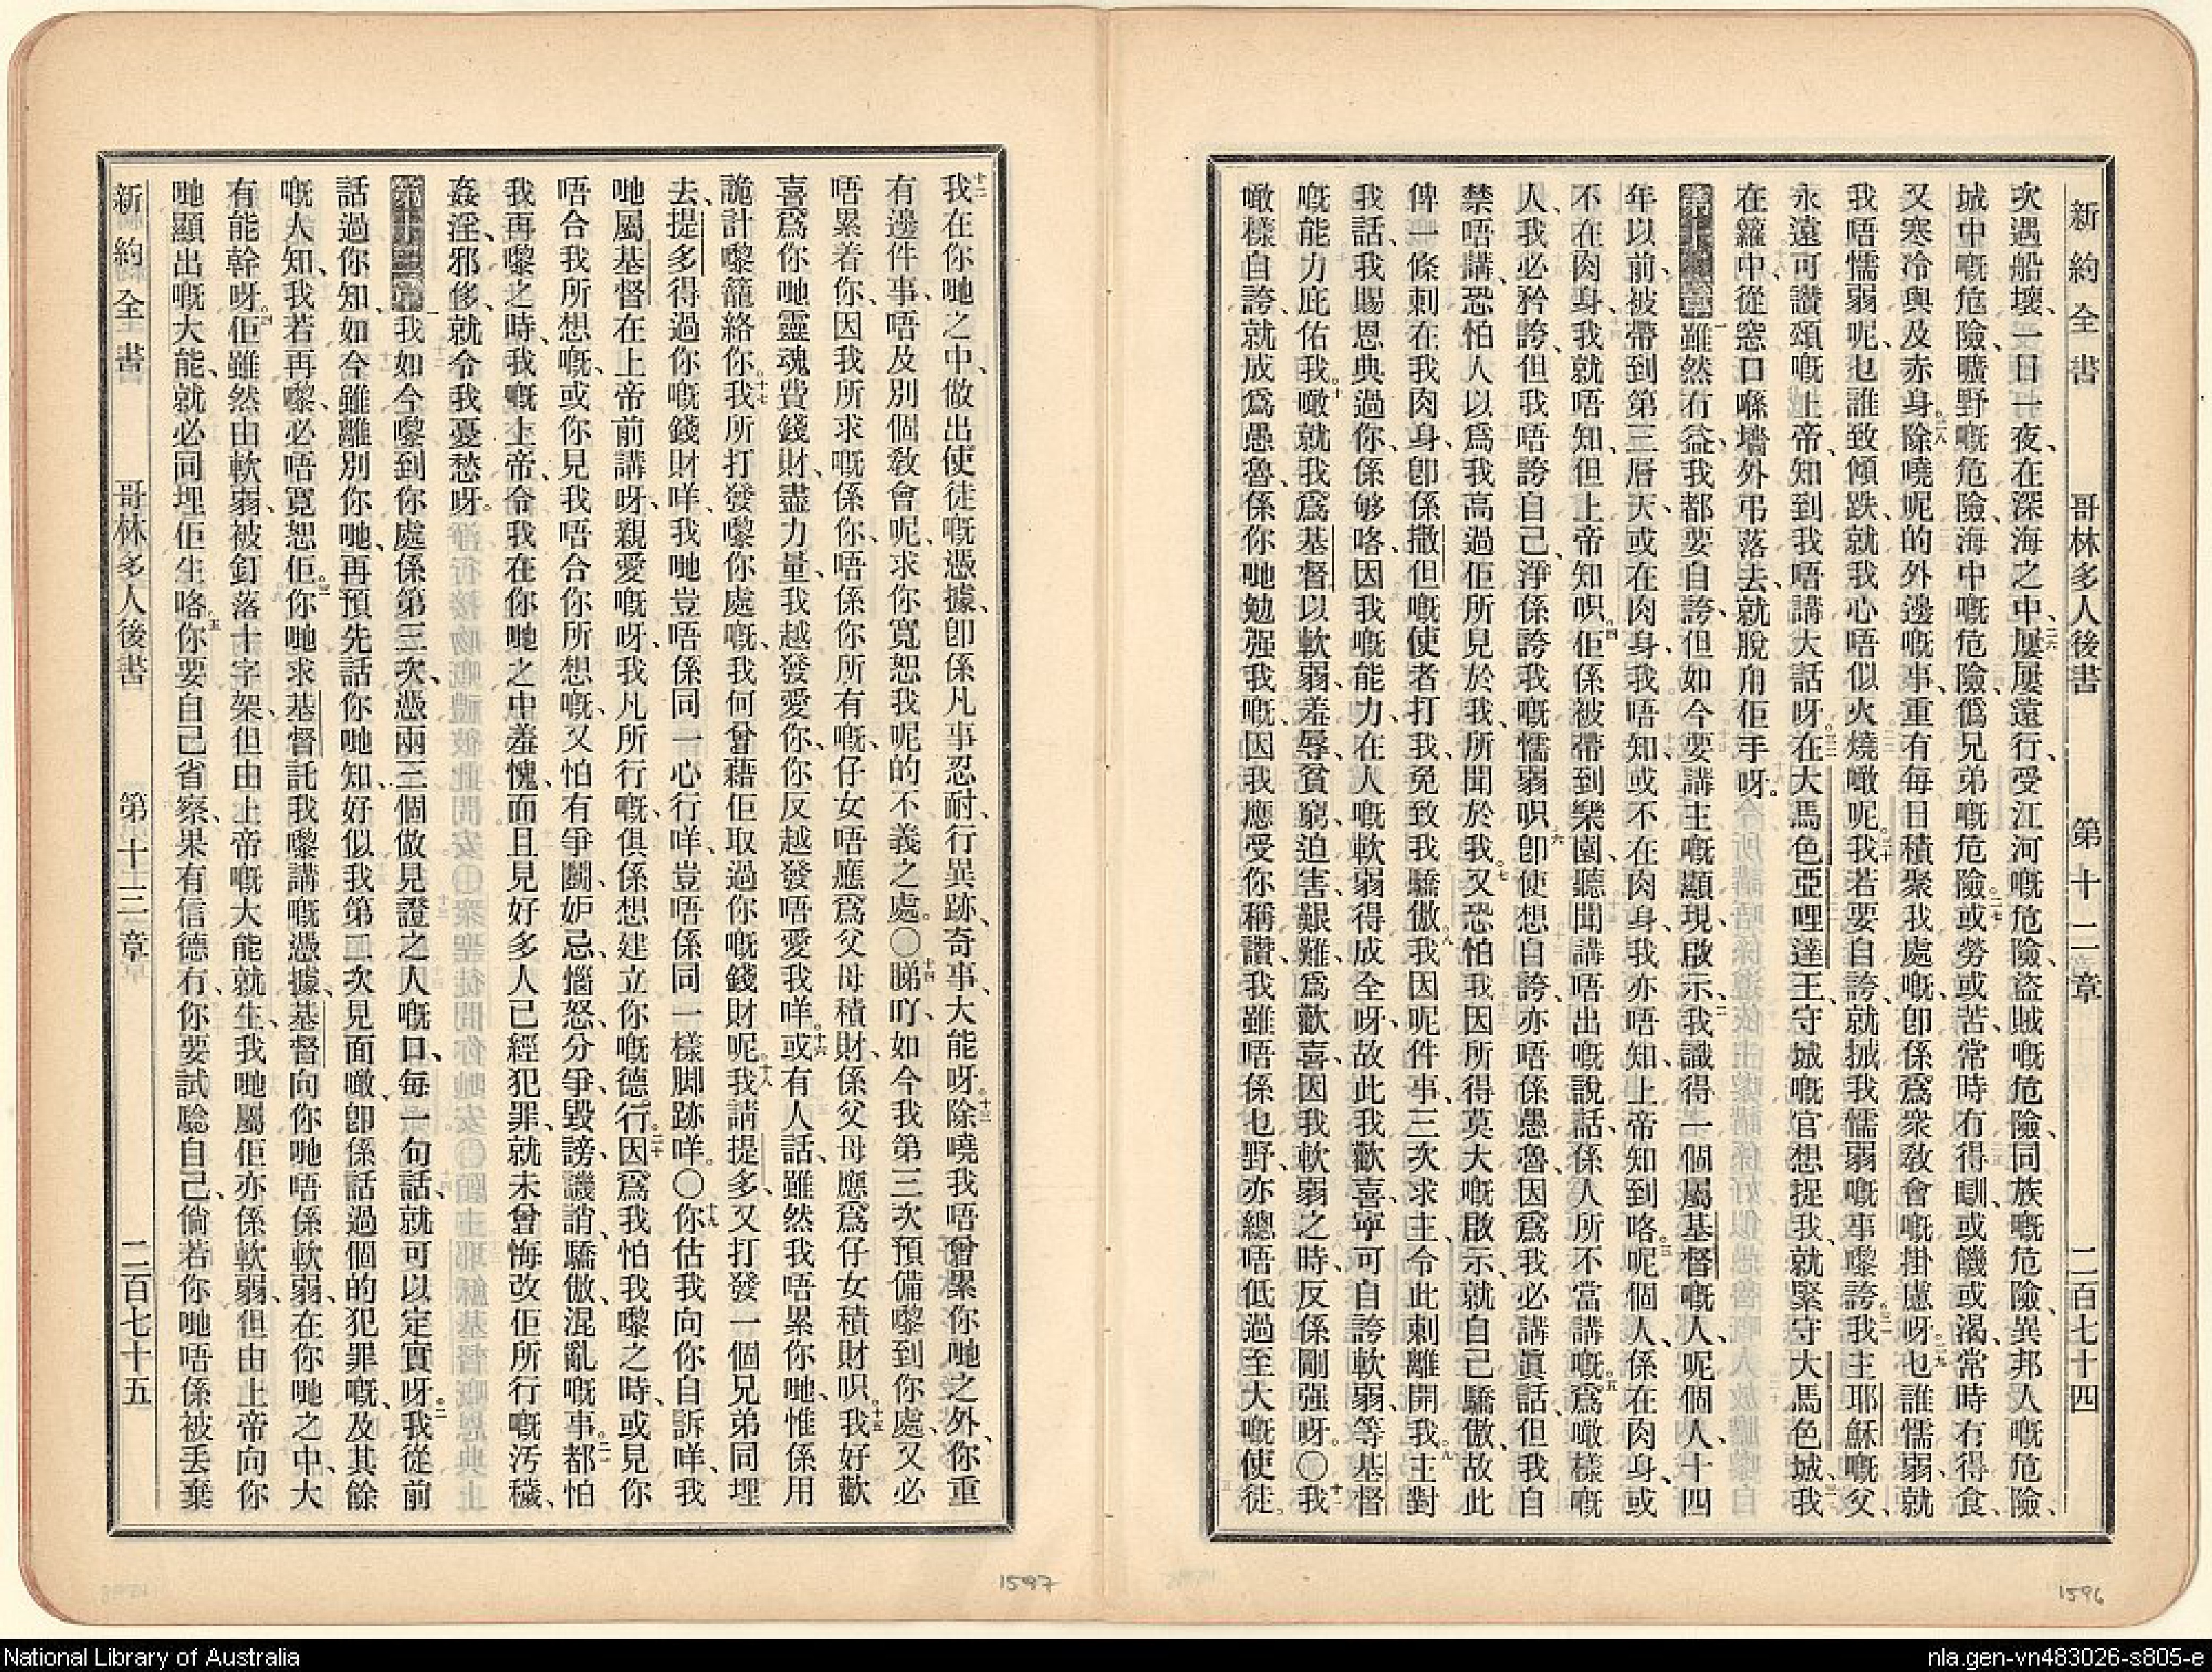 新約全書 哥林多人後書 第十二章 二百七十四
次遇船壞、一日一夜、在深海之中、二六屢屢遠行、受江河嘅危險、盜賊嘅危險、同族嘅危險、異邦人嘅危險、
城中嘅危險、曠野嘅危險、海中嘅危險、僞兄弟嘅危險。二七或勞或苦、常時冇得瞓、或饑或渴、常時冇得食、
又寒冷與及赤身。二八除曉呢的外邊嘅事、重有每日積聚我處嘅、卽係爲衆敎會嘅掛慮呀。二九乜誰懦弱、就
我唔懦弱呢、乜誰致傾跌、就我心唔似火燒噉呢。三十我若要自誇、就𢫏我懦弱嘅事嚟誇。三一我主耶穌嘅父、
永遠可讚頌嘅上帝、知到我唔講大話呀。三二在大馬色亞哩達王、守城嘅官想捉我、就緊守大馬色城、三三我
在籮中、從窓口喺墻外弔落去、就脫甪佢手呀。
第十二章一雖然冇益、我都要自誇、但如今要講主嘅顯現、啟示。二我識得一個屬基督嘅人、呢個人、十四
年以前、被帶到第三層天、或在肉身、我唔知、或不在肉身、我亦唔知、上帝知到咯。三呢個人、係在肉身、或
不在肉身、我就唔知、但上帝知呮。四佢係被帶到樂園、聽聞講唔出嘅說話、係人所不當講嘅。五爲噉樣嘅
人、我必矜誇、但我唔誇自己、淨係誇我嘅懦弱呮。六卽使想自誇、亦唔係愚魯、因爲我必講眞話、但我自
禁唔講、恐怕人以爲我高過佢所見於我、所聞於我。七又恐怕我因所得莫大嘅啟示、就自己驕傲、故此
俾一條刺在我肉身、卽係撒但嘅使者打我、免致我驕傲。八我因呢件事、三次求主、令此刺離開我。九主對
我話、我賜恩典過你、係够咯、因我嘅能力、在人嘅軟弱得成全呀、故此我歡喜、寧可自誇軟弱、等基督
嘅能力庇佑我。十噉就我爲基督、以軟弱、羞辱、貧窮、迫害、艱難、爲歡喜、因我軟弱之時、反係剛强呀。〇十一我
噉樣自誇、就成爲愚魯、係你哋勉强我嘅、因我應受你稱讚、我雖唔係乜野、亦總唔低過至大嘅使徒。
十二我在你哋之中、做出使徒嘅憑據、卽係凡事忍耐、行異跡、奇事、大能呀。十三除曉我唔曾累你哋之外、你重
有邊件事、唔及別個敎會呢、求你寬恕我呢的不義之處。〇十四睇吖、如今我第三次預備嚟到你處、又必
唔累着你、因我所求嘅係你、唔係你所有嘅、仔女唔應爲父母積財、係父母應爲仔女積財呮。十五我好歡
喜爲你哋靈魂費錢財、盡力量、我越發愛你、你反越發唔愛我咩。十六或有人話、雖然我唔累你哋、惟係用
詭計嚟籠絡你。十七我所打發嚟你處嘅、我何曾藉佢取過你嘅錢財呢。十八我請提多、又打發一個兄弟同埋
去、提多得過你嘅錢財咩、我哋豈唔係同一心行咩、豈唔係同一樣脚跡咩。〇十九你估我向你自訴咩、我
哋屬基督在上帝前講呀、親愛嘅呀、我凡所行嘅、俱係想建立你嘅德行。二十因爲我怕我嚟之時、或見你
唔合我所想嘅、或你見我唔合你所想嘅、又怕有爭鬭、妒忌、惱怒、分爭、毀謗、譏誚、驕傲、混亂嘅事。二一都怕
我再嚟之時、我嘅上帝、令我在你哋之中羞愧、而且見好多人已經犯罪、就未曾悔改佢所行嘅汚穢、
姦淫、邪侈、就令我憂愁呀。
第十三章一我如今嚟到你處、係第三次、憑兩三個做見證之人嘅口、每一句話、就可以定實呀。二我從前
話過你知、如今雖離別你哋、再預先話你哋知、好似我第二次見面噉、卽係話過個的犯罪嘅、及其餘
嘅人知、我若再嚟、必唔寬恕佢。三你哋求基督託我嚟講嘅憑據、基督向你哋唔係軟弱、在你哋之中、大
有能幹呀。四佢雖然由軟弱、被釘落十字架、但由上帝嘅大能就生、我哋屬佢、亦係軟弱、但由上帝向你
哋顯出嘅大能、就必同埋佢生咯。五你要自己省察、果有信德冇、你要試驗自己、倘若你哋唔係被丟棄
新約全書 哥林多人後書 第十三章 二百七十五
1597
1596
National Library of Australia
nla.gen-vn483026-s805-e